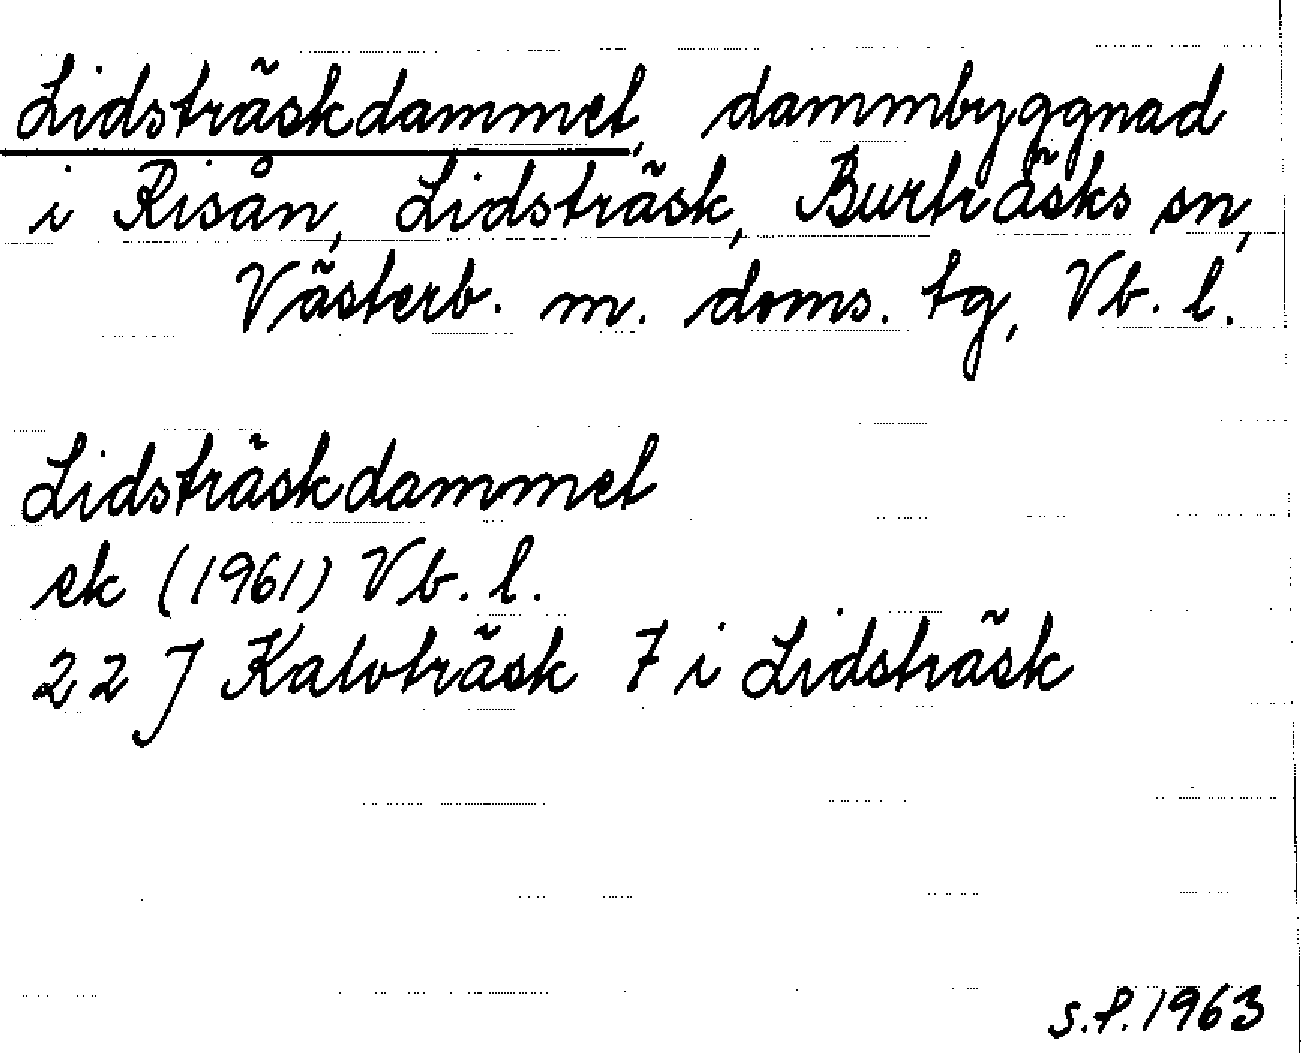 Lidsträskdammet, dammbyggnad
i Risån, Lidsträsk, Burträsks sn,
Västerb. m. doms. tg, Vb. l.
Lidsträskdammet
ek (1961) Vb. l.
22 J Kalvträsk 7 i Lidsträsk
s.f. 1963